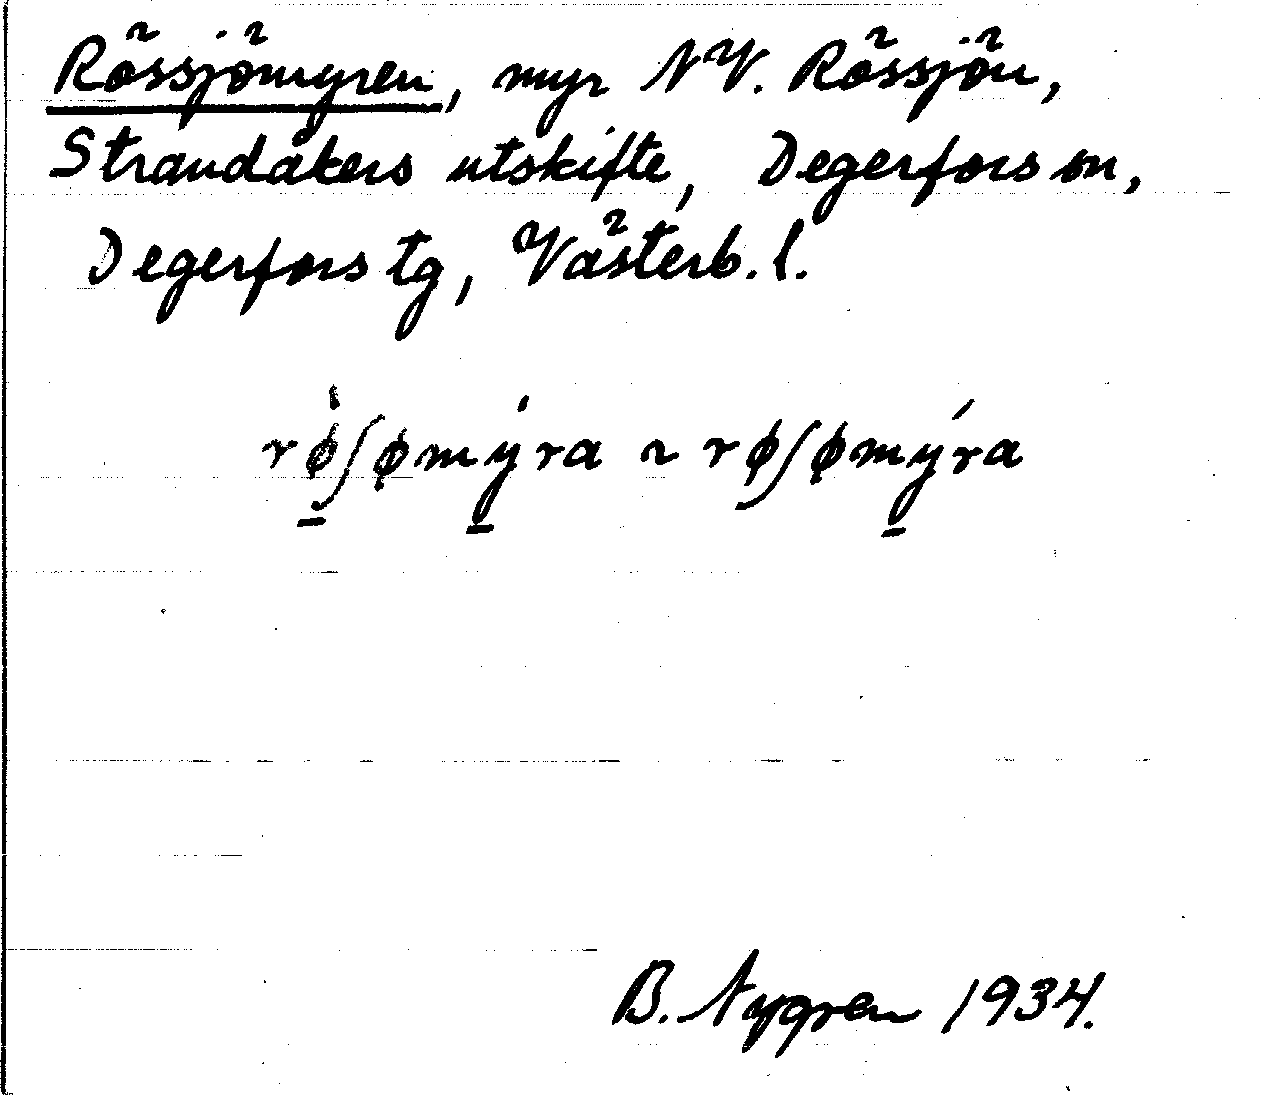 Rössjömyren, myr NV. Rössjön,
Strandåkers utskifte, Degerfors sn,
Degerfors tg, Västerb. l.
rø̀ʃømýra ~ røʃømýra
B. Nygren 1934.